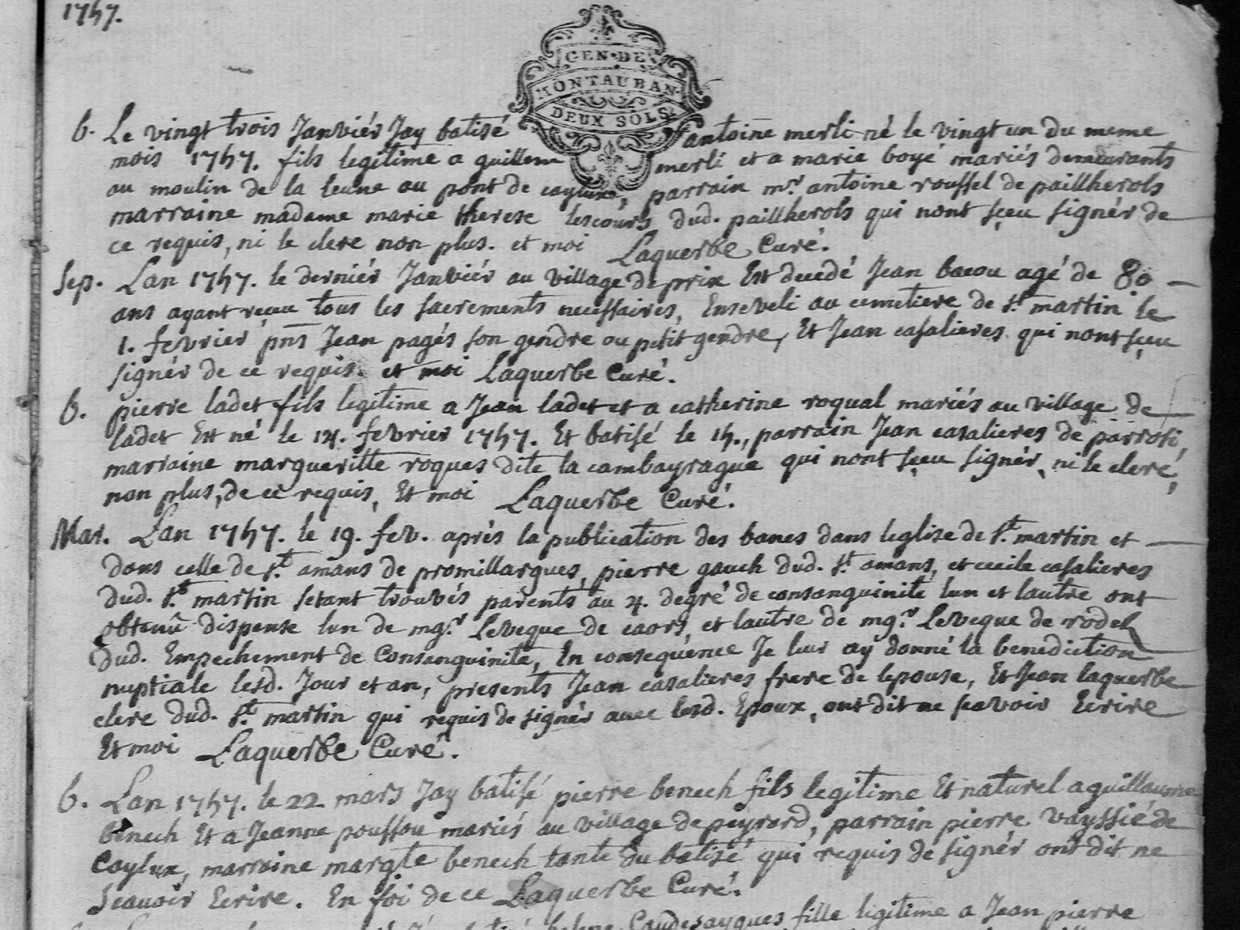 1757.
GEN·DE
MONTAUBAN
DEUX SOLS
b. Le vingt trois Janviér Jay batisé antoine merli né le vingt un du meme
mois 1757. fils legitime a guillem merli et a marie boyé mariés demeurants
au moulin de la leune au pont de caylux, parrain mr. antoine roussel de pailherols
marraine madame marie therese lescours dud. pailherols qui nont sçeu signér de
ce requis, ni le clerc non plus. et moi Laquerbe Curé.
Sep. Lan 1757. le derniér Janviér au village de prix Est decedé Jean bacou agé de 80
ans ayant reçeu tous les sacrements necessaires, Enseveli au cemetiere de st. martin le
1. fevrier pnts Jean pagés son gendre ou petit gendre, Et Jean casalieres qui nont sçeu
signér de ce requis. et moi Laquerbe Curé.
b. pierre ladet fils legitime a Jean ladet et a catherine roqual mariés au village de
ladet Est né le 14. fevrier 1757. Et batisé le 15., parrain Jean casalieres de parroti,
marraine margueritte roques dite la cambayrague qui nont sçeu signér, ni le clerc,
non plus, de ce requis, Et moi Laquerbe Curé.
Mar. Lan 1757. le 19. fev. aprés la publication des bancs dans leglise de st. martin et
dans celle de st. amans de promillargues, pierre gauch dud. st. amans, et cecile casalieres
dud. st. martin setant trouvés parents au 4. degré de consanguinité lun et lautre ont
obtenû dispense lun de mgr. Leveque de caors, et lautre de mgr. Leveque de rodes
dud. Empechement de Consanguinité, En consequence Je leur ay donné la benediction
nuptiale lesd. Jour et an, presents Jean casalieres frere de lepouse, Et Jean laquerbe
clerc dud. st. martin qui requis de signér avec lesd. Epoux, ont dit ne scavoir Ecrire
Et moi Laquerbe Curé.
b. Lan 1757. le 22 mars Jay batisé pierre benech fils legitime Et naturel a guillaume
benech Et a Jeanne poussou mariés au village de peyrard, parrain pierre vayssié de
Caylux, marraine margte benech tante du batisé qui requis de signér ont dit ne
Scavoir Ecrire. En foi de ce Laquerbe Curé.
fille legitime a Jean pierre